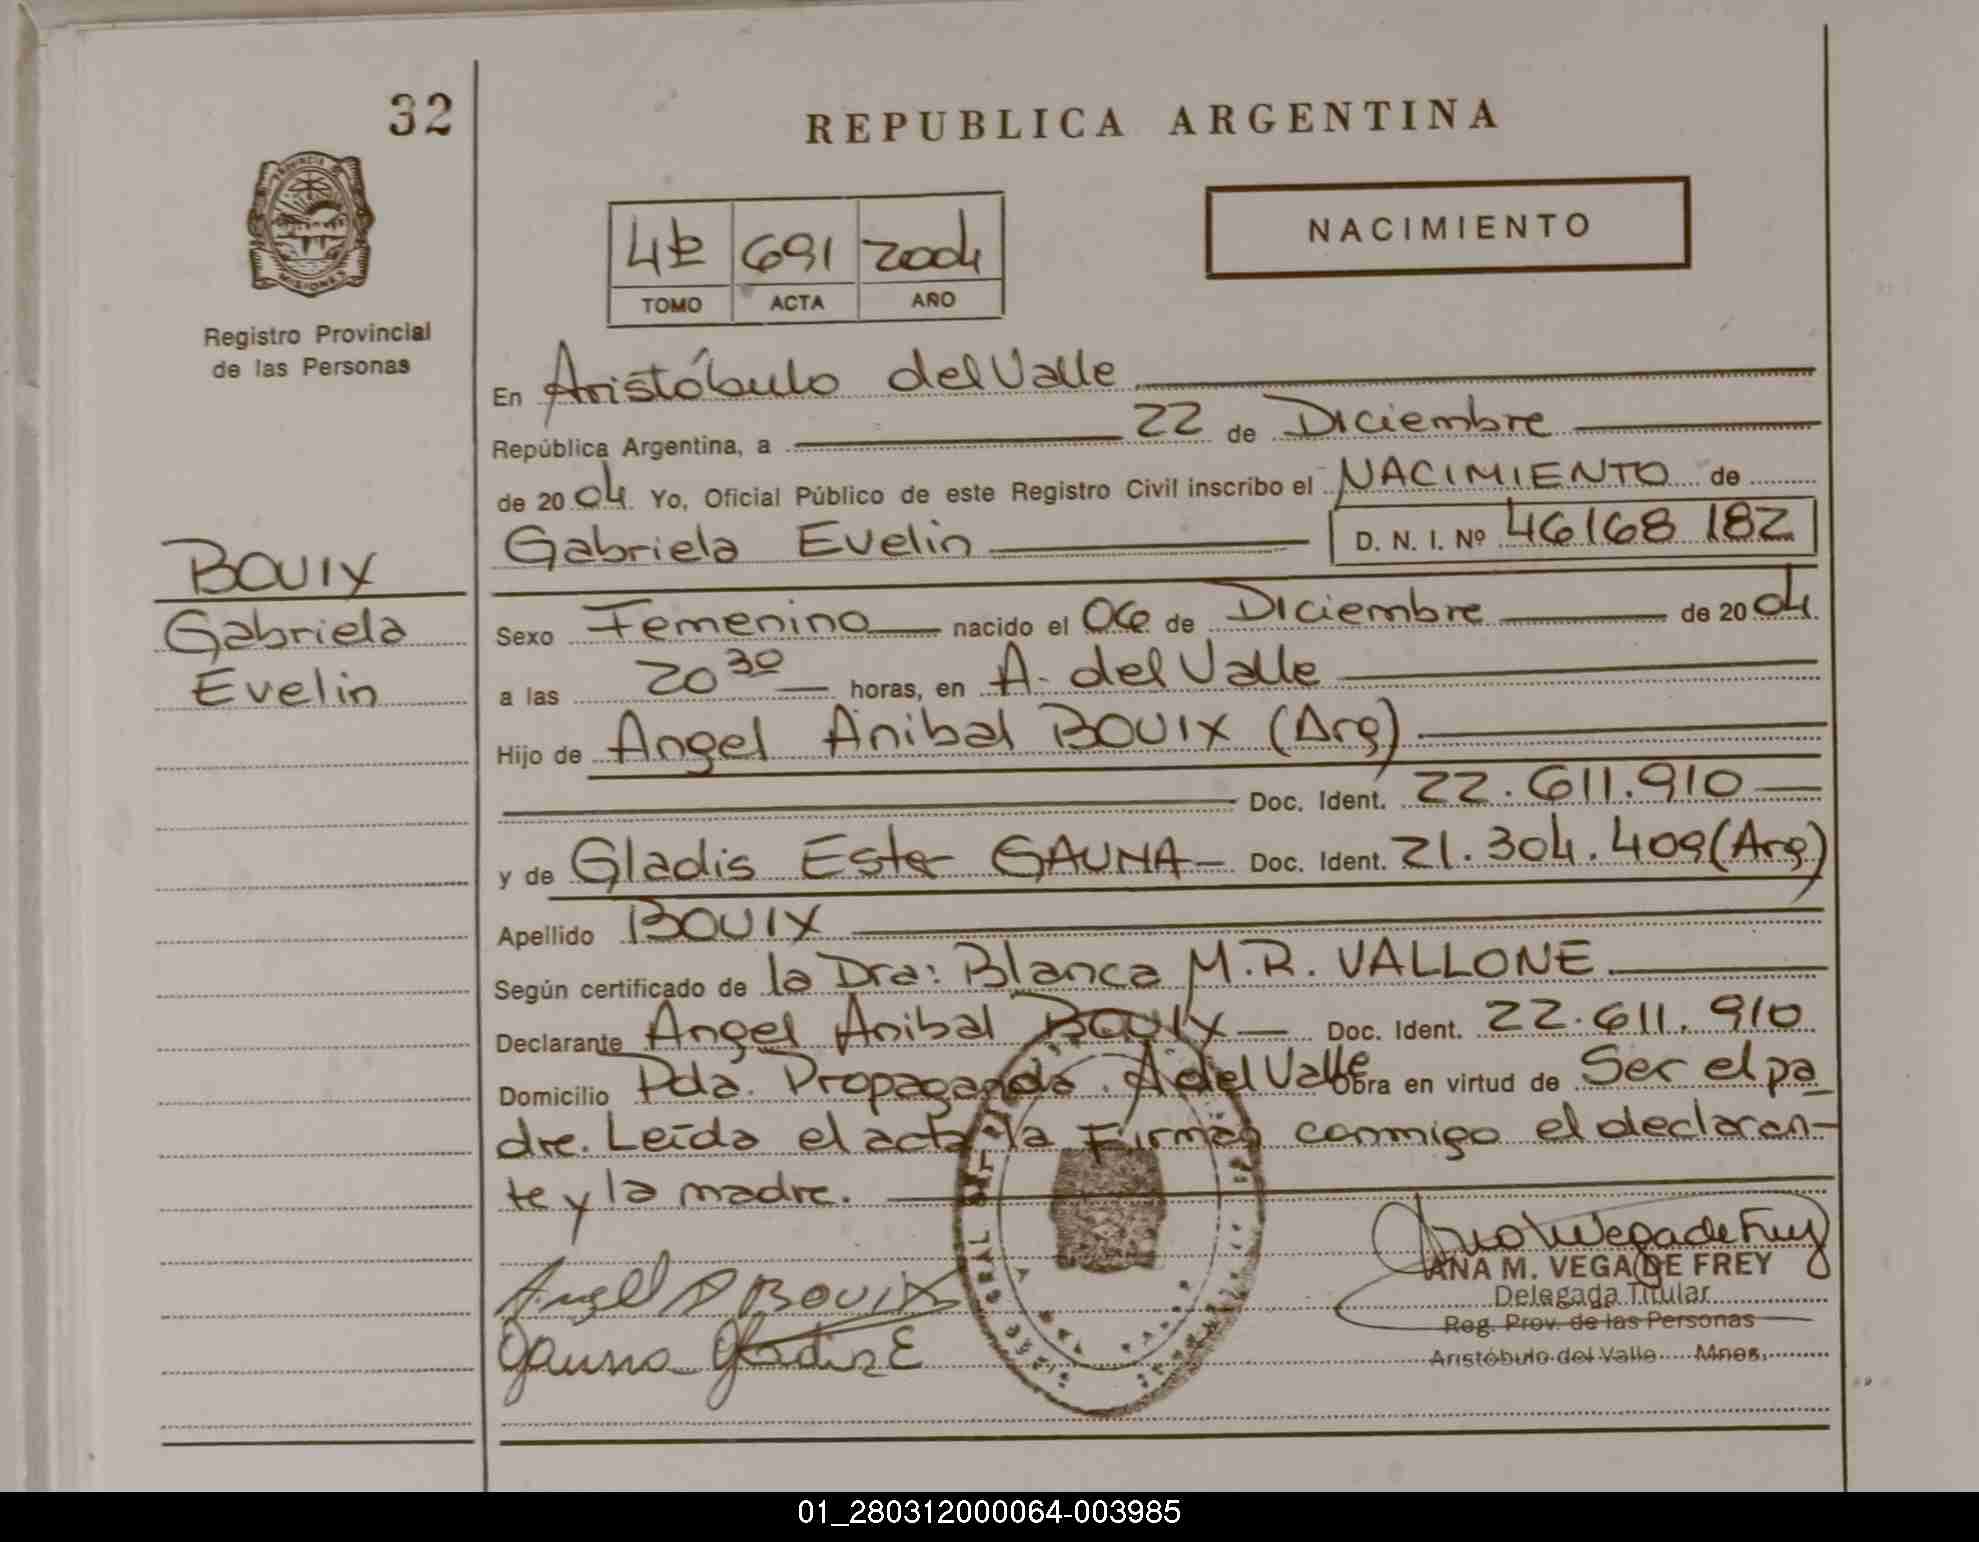 32
REPUBLICA ARGENTINA
NACIMIENTO
691 2004
TOMO ACTA AÑO
PROVINCIA
MISIONES
Registro Provincial
de las Personas
En Aristóbulo del Valle
República Argentina, a 22 de Diciembre
de 2004. Yo, Oficial Público de este Registro Civil inscribo el NACIMIENTO de
Gabriela Evelin D. N. I. Nº 46168 182
BOUIX
Gabriela
Evelin
Sexo Femenino nacido el 06 de Diciembre de 2004
a las 20 30 horas, en A. del Valle
Hijo de Angel Anibal BOUIX (Arg)
Doc. Ident. 22.611.910
y de Gladis Ester GAUNA Doc. Ident. 21.304.409 (Arg)
Apellido BOUIX
Según certificado de la Dra: Blanca M.R. VALLONE
Declarante Angel Anibal BOUIX Doc. Ident. 22.611.910
Domicilio Pda. Propaganda. A del Valle Obra en virtud de Ser el pa
dre. Leída el acta la Firman conmigo el declaran-
te y la madre.
Angel A BOUIX
Gauna Gladis E
Ana M Vega de Frey
ANA M. VEGA DE FREY
Delegada Titular
Reg. Prov. de las Personas
Aristóbulo del Valle Mnes.
01_280312000064-003985